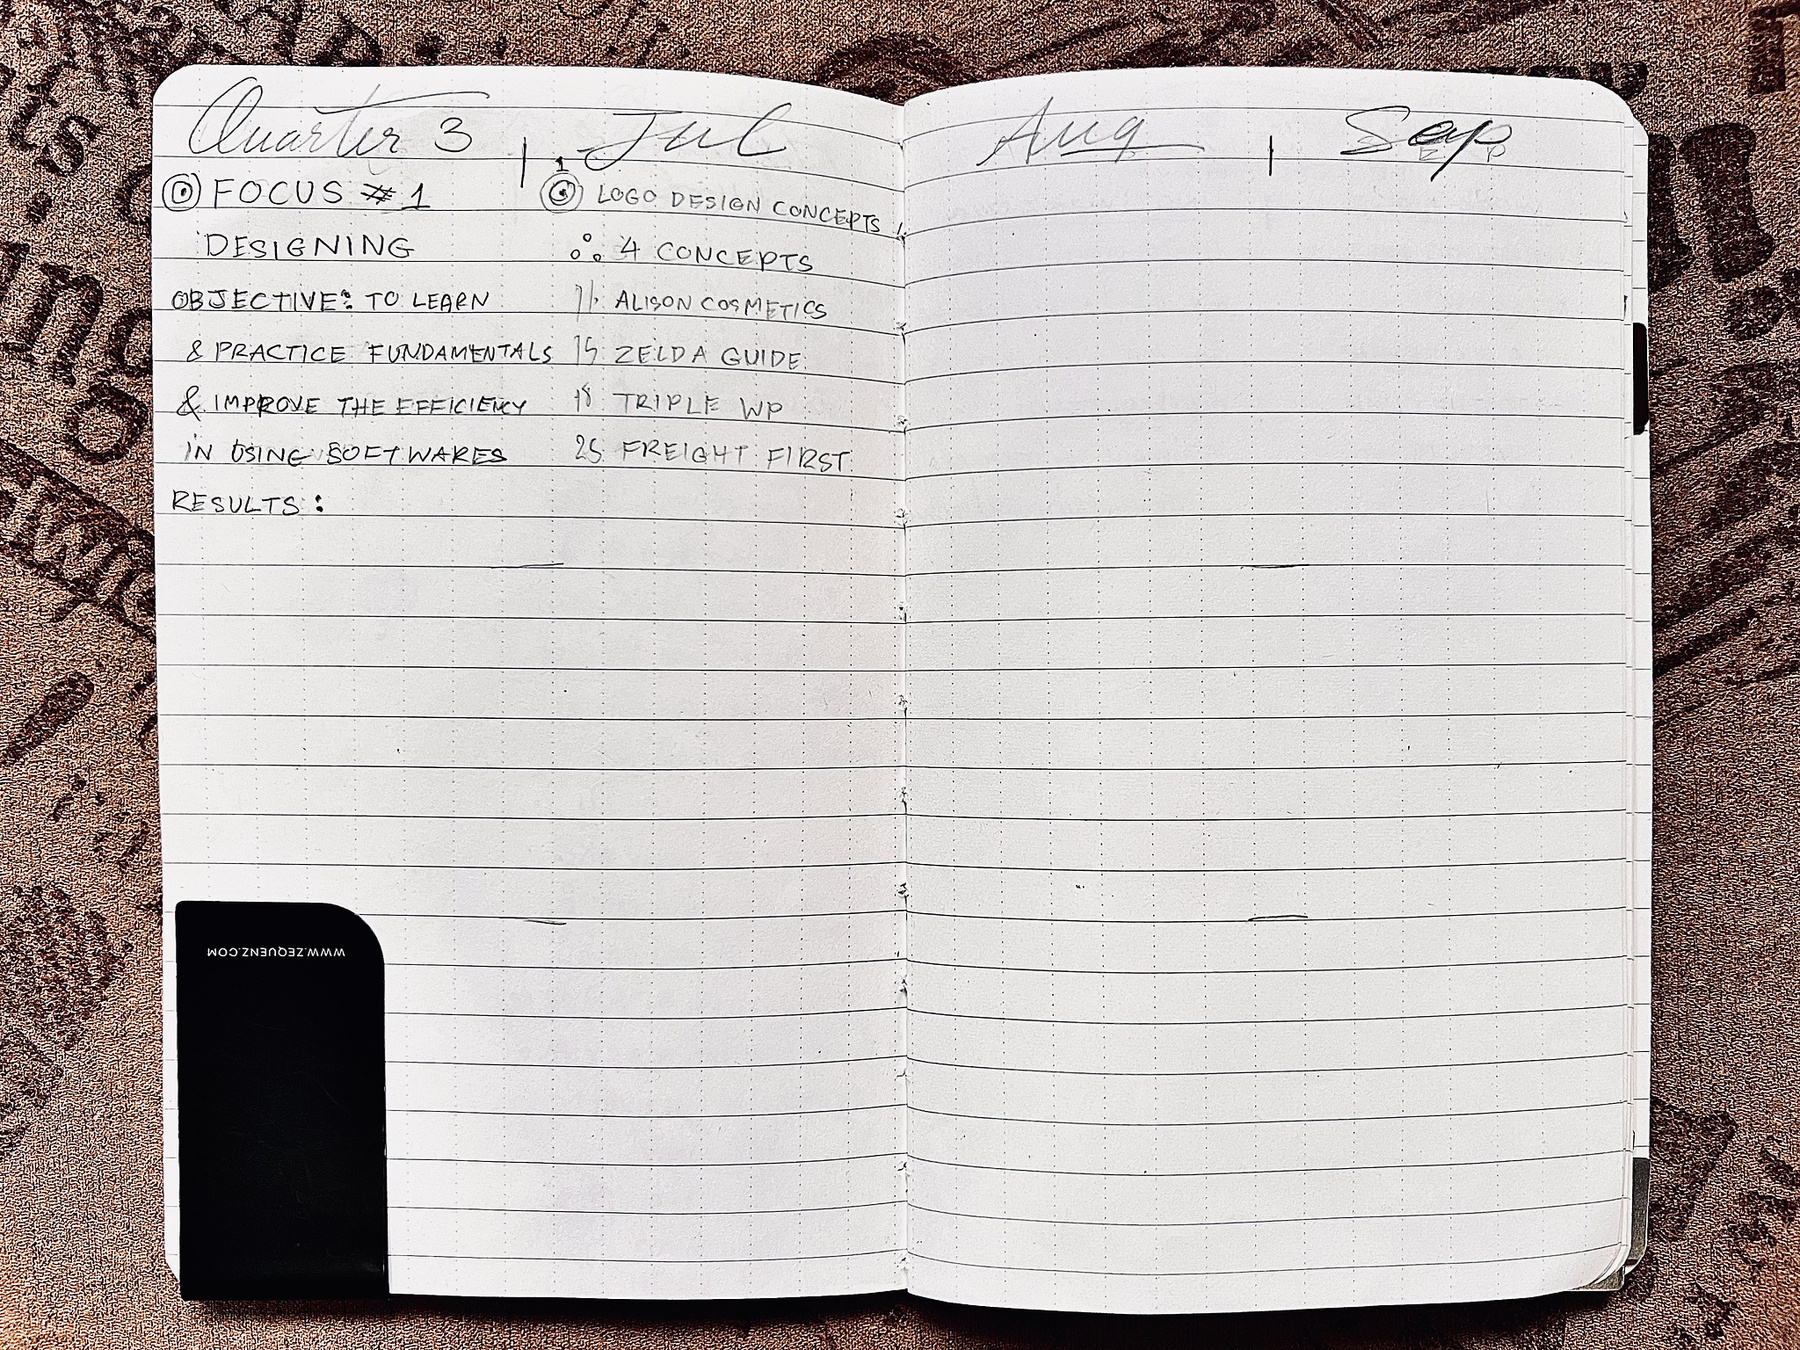 Quarter 3
◎ FOCUS # 1
DESIGNING
OBJECTIVE: TO LEARN
& PRACTICE FUNDAMENTALS
& IMPROVE THE EFFICIENCY
IN USING SOFTWARES
RESULTS :
Jul
LOGO DESIGN CONCEPTS
4 CONCEPTS
11 ALISON COSMETICS
15 ZELDA GUIDE
18 TRIPLE WP
25 FREIGHT FIRST
Aug
Sep
WWW.ZEQUENZ.COM